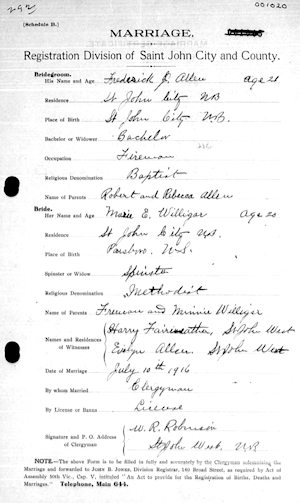 292
001020
(Schedule B.)
MARRIAGE.
Registration Division of Saint John City and County.
Bridegroom.
His Name and Age Frederick J. Allen Age 21
Residence St John City NB
Place of Birth St John City N.B.
Bachelor or Widower Bachelor
Occupation Fireman
Religious Denomination Baptist
Name of Parents Robert and Rebecca Allen
Bride.
Her Name and Age Marie E. Williger Age 20
Residence St John City N.B.
Place of Birth Parsboro N.S.
Spinster or Widow Spinster
Religious Denomination Methodist
Name of Parents Freeman and Minnie Williger
Names and Residences of Witnesses Harry Fairweather, St John West
Evelyn Allen, St John West
Date of Marriage July 10th 1916
By whom Married Clergyman
By License or Banns License
Signature and P. O. Address of Clergyman W. R. Robinson
St John West, N.B
NOTE.—The above Form is to be filled in fully and accurately by the Clergyman solemnizing the
Marriage and forwarded to John B. Jones, Division Registrar, 160 Broad Street, as required by Act of
Assembly 50th Vic., Cap. V, intituled "An Act to provide for the Registration of Births, Deaths and
Marriages." Telephone, Main 644.